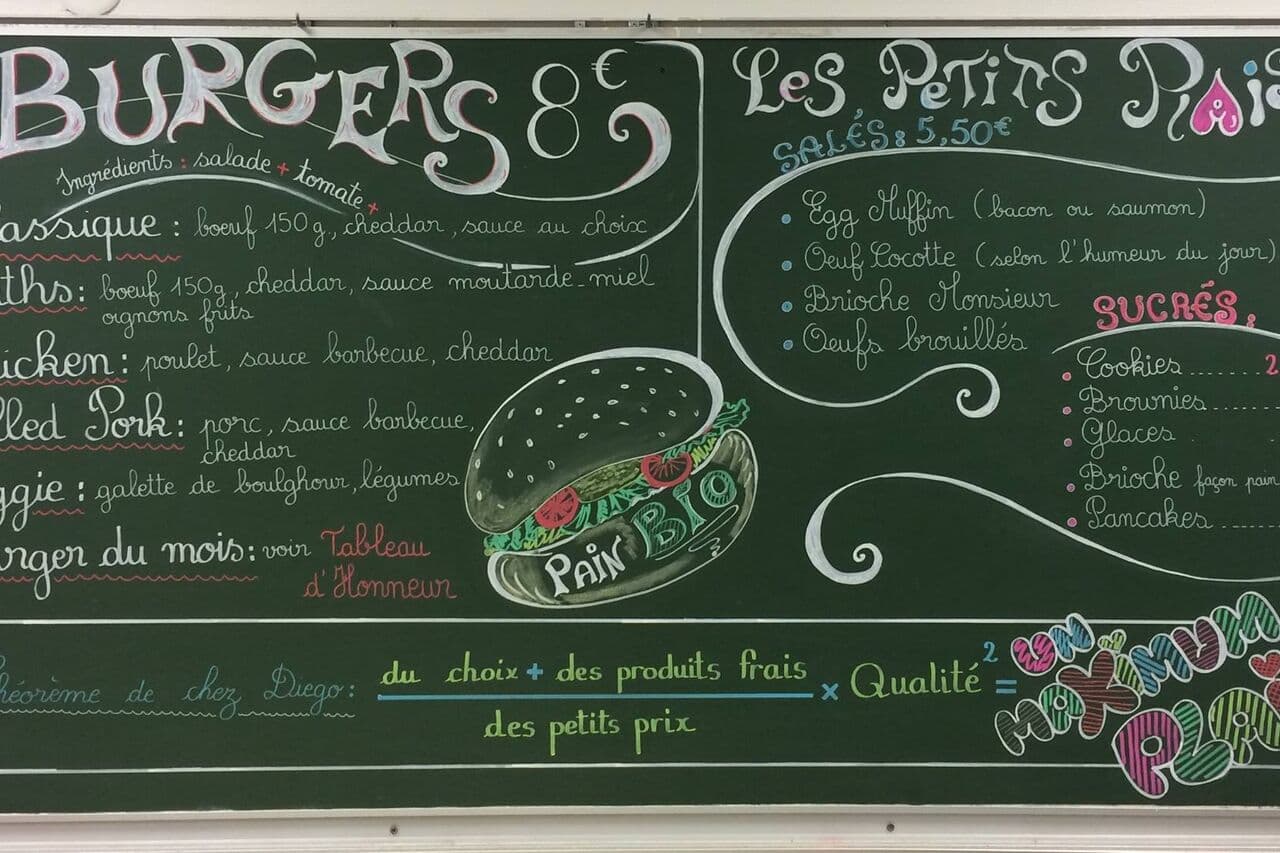 BURGERS 8€
Ingrédients : salade + tomate +
assique : boeuf 150g., cheddar, sauce au choix
ths : boeuf 150g, cheddar, sauce moutarde-miel
oignons frits
icken : poulet, sauce barbecue, cheddar
lled Pork : porc, sauce barbecue,
cheddar
ggie : galette de boulghour, légumes
rger du mois : voir Tableau
d'Honneur
PAIN BIO
LES PETITS PLAIS
SALÉS : 5,50€
• Egg Muffin (bacon ou saumon)
• Oeuf Cocotte (selon l'humeur du jour)
• Brioche Monsieur
• Oeufs brouillés
SUCRÉS :
• Cookies ....... 2
• Brownies .....
• Glaces
• Brioche façon pain
• Pancakes .....
héorème de chez Diego :
du choix + des produits frais
des petits prix
× Qualité² =
UN
MAXIMUM
PLA